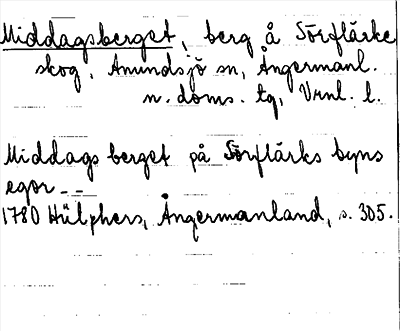 Middagsberget, berg å Sörflärke
skog, Anundsjö sn, Ångermanl.
n. doms. tg, Vrnl. l.
Middags berget på Sörflärks byns
egor - -
1780 Hülphers, Ångermanland, s. 305.